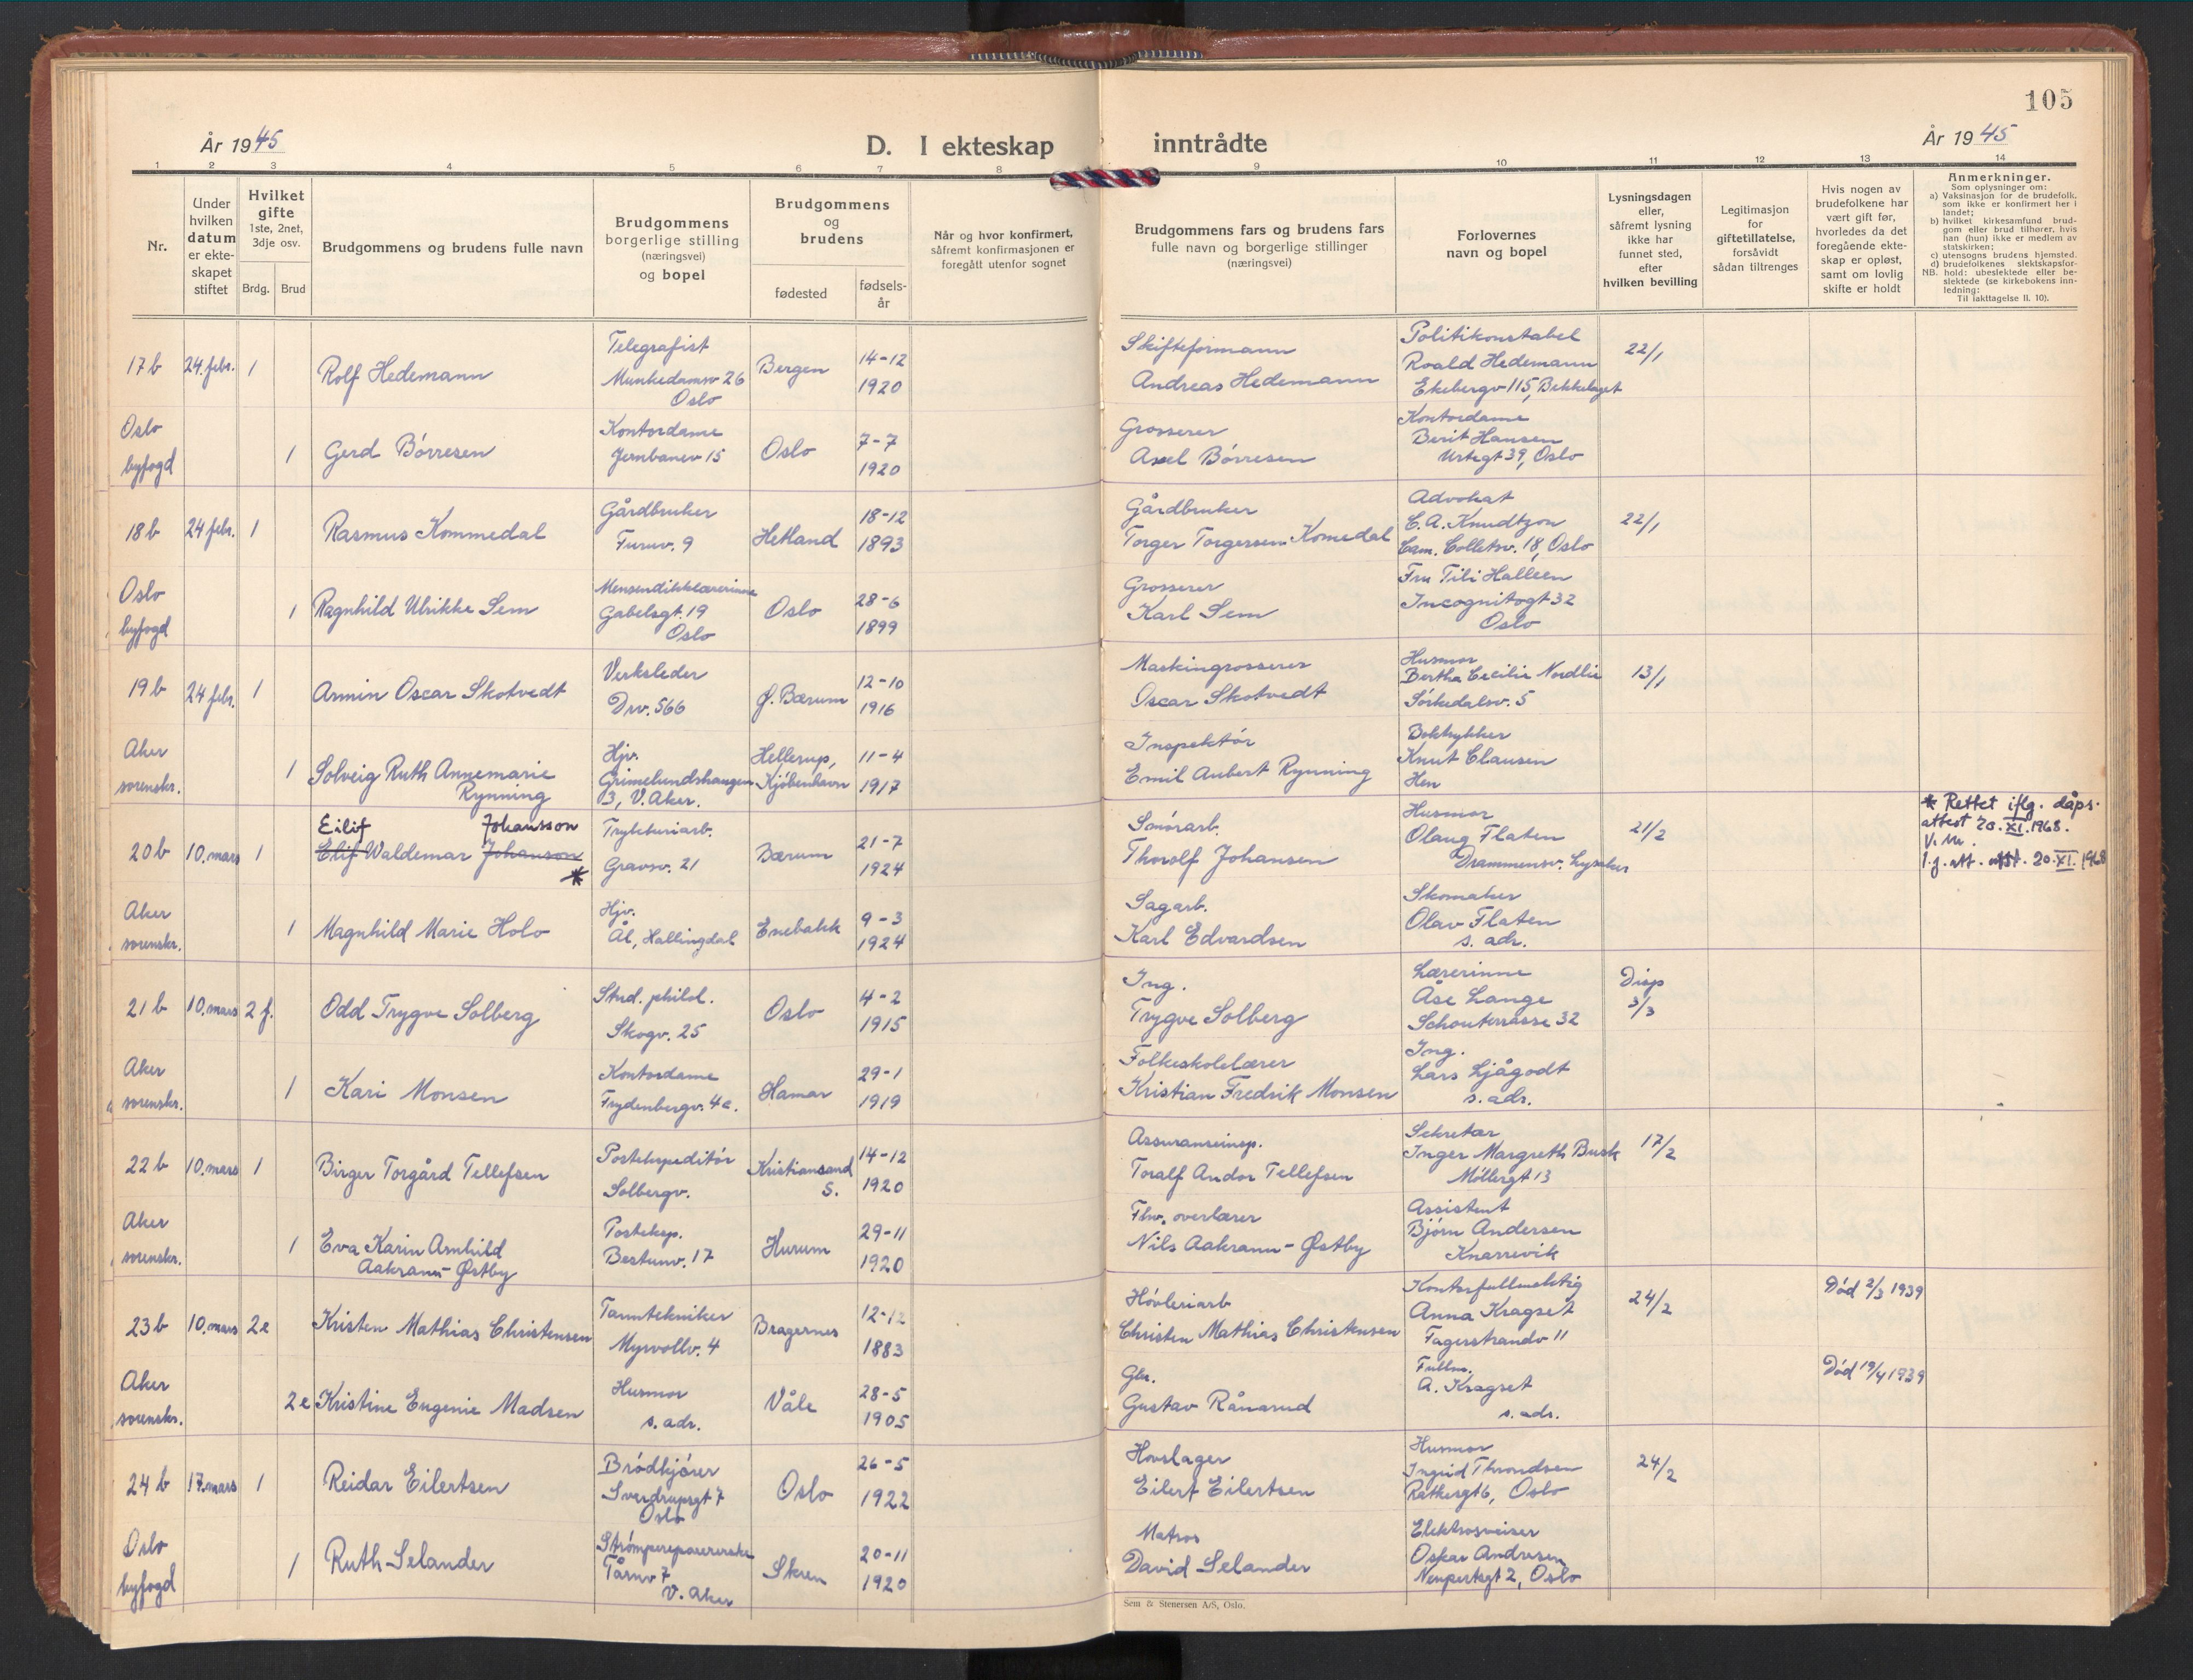 105
År 1945
D. I ekteskap inntrådte
År 1945
1 2 3 4 5 6 7 8 9 10 11 12 13 14
Nr.
Under
hvilken
datum
er ekte-
skapet
stiftet
Hvilket
gifte
1ste, 2net,
3dje osv.
Brdg. Brud
Brudgommens og brudens fulle navn
Brudgommens
borgerlige stilling
(næringsvei)
og bopel
Brudgommens
og
brudens
fødested
fødsels-
år
Når og hvor konfirmert,
såfremt konfirmasjonen er
foregått utenfor sognet
Brudgommens fars og brudens fars
fulle navn og borgerlige stillinger
(næringsvei)
Forlovernes
navn og bopel
Lysningsdagen
eller,
såfremt lysning
ikke har
funnet sted,
efter
hvilken bevilling
Legitimasjon
for
giftetillatelse,
forsåvidt
sådan tiltrenges
Hvis nogen av
brudefolkene har
vært gift før,
hvorledes da det
foregående ekte-
skap er opløst,
samt om lovlig
skifte er holdt
Anmerkninger.
Som oplysninger om:
a) Vaksinasjon for de brudefolk,
som ikke er konfirmert her i
landet;
b) hvilket kirkesamfund brud-
gom eller brud tilhører, hvis
han (hun) ikke er medlem av
statskirken;
c) utensogns brudens hjemsted.
d) brudefolkenes slektskapsfor-
NB. hold: ubeslektede eller be-
slektede (se kirkebokens inn-
ledning:
Til iakttagelse II. 10).
17b 24. febr. 1 Rolf Hedemann
Telegrafist
Munkedamsv 26
Oslo
Bergen
14-12
1920
Skifteformann
Andreas Hedemann
Politikonstabel
Roald Hedemann
Ekebergv 115, Bekkelaget
22/1
Oslo
byfogd
1 Gerd Börresen
Kontordame
Jernbanev 15
Oslo
7-7
1920
Grosserer
Axel Börresen
Kontordame
Berit Hansen
Urtegt 39, Oslo
18b 24 febr. 1 Rasmus Kommedal
Gårdbruker
Furuv. 9
Hetland
18-12
1893
Gårdbruker
Torger Torgersen Komedal
Advokat
C. A. Knudtzon
Cam. Colletsv. 18, Oslo
22/1
Oslo
byfogd
1 Ragnhild Ulrikke Sem
Mensendiklærerinne
Gabelsgt. 19
Oslo
Oslo
28-6
1899
Grosserer
Karl Sem
Fru Tili Halleen
Incognitogt 32
Oslo
19b 24 febr. 1 Armin Oscar Skotvedt
Verksleder
Drv. 566
Ø. Bærum
12-10
1916
Maskingrosserer
Oscar Skotvedt
Husmor
Bertha Cecilie Nordlie
Sörkedalsv. 5
13/1
Aker
sorenskr.
1 Solveig Ruth Annemarie
Rynning
Hjv.
Grimelundshaugen
3, V. Aker.
Hellerup,
Kjöbenhavn
11-4
1917
Inspektör
Emil Aubert Rynning
Boktrykker
Knut Clausen
Hen
20b 10. mars 1
Eilif Johansson
Elif Waldemar Johanson
*
Gravsv. 21
Bærum
21-7
1924
Smörarb.
Thorolf Johansen
Husmor
Olaug Flaten
Drammensv. Lysaker
21/2
* Rettet iflg. dåps-
attest 20. XI. 1968.
Aker
sorenskr.
1 Magnhild Marie Holo
Hjv.
Ål, Hallingdal
Enebakk
9-3
1924
Sagarb.
Karl Edvardsen
Skomaker
Olav Flaten
s. adr.
21b 10. mars 2 f. Odd Trygve Solberg
Stud. philol.
Skogv. 25
Oslo
4-2
1915
Ing.
Trygve Solberg
Lærerinne
Åse Lange
Schouterrasse 32
Disp
3/3
Aker
sorenskr.
1 Kari Monsen
Kontordame
Frydenbergv. 4c.
Hamar
29-1
1919
Folkeskolelærer
Kristian Fredrik Monsen
Ing.
Lars Ljågodt
s. adr.
22b 10. mars 1 Birger Torgård Tellefsen
Postekspeditör
Solbergv.
Kristiansand
S.
14-12
1920
Assuranseinsp.
Toralf Andor Tellefsen
Sekretær
Inger Margreth Busk
Möllergt 13
17/2
Aker
sorenskr.
1 Eva Karin Arnhild
Aakrann-Østby
Posteksp.
Bestumv. 17
Hurum
29-11
1920
Fhv. overlærer
Nils Aakrann-Østby
Assistent
Björn Andersen
Knarrevik
23b 10. mars 2e Kristen Mathias Christensen
Tanntekniker
Myrvollv. 4
Bragernes
12-12
1883
Hövleriarb
Christen Mathias Christensen
Kontorfullmektig
Anna Kragset
Fagerstrandv 11
24/2
Död 2/3 1939
Aker
sorenskr.
2e Kristine Eugenie Madsen
Husmor
s. adr.
Våle
28-5
1905
Gbr.
Gustav Rånerud
Fullm.
A. Kragset
s. adr.
Död 19/4 1939
24b 17. mars 1 Reidar Eilertsen
Brödkjörer
Sverdrupsgt 7
Oslo
Oslo
26-5
1922
Hovslager
Eilert Eilertsen
Husmor
Ingrid Throndsen
Ratkesgt 6, Oslo
24/2
Oslo
byfogd
1 Ruth Selander
Strömpereparererske
Tårnv 7
V. Aker
Skien
20-11
1920
Matros
David Selander
Elektrosveiser
Oskar Andresen
Neupertsgt 2, Oslo
Sem & Stenersen A/S, Oslo.